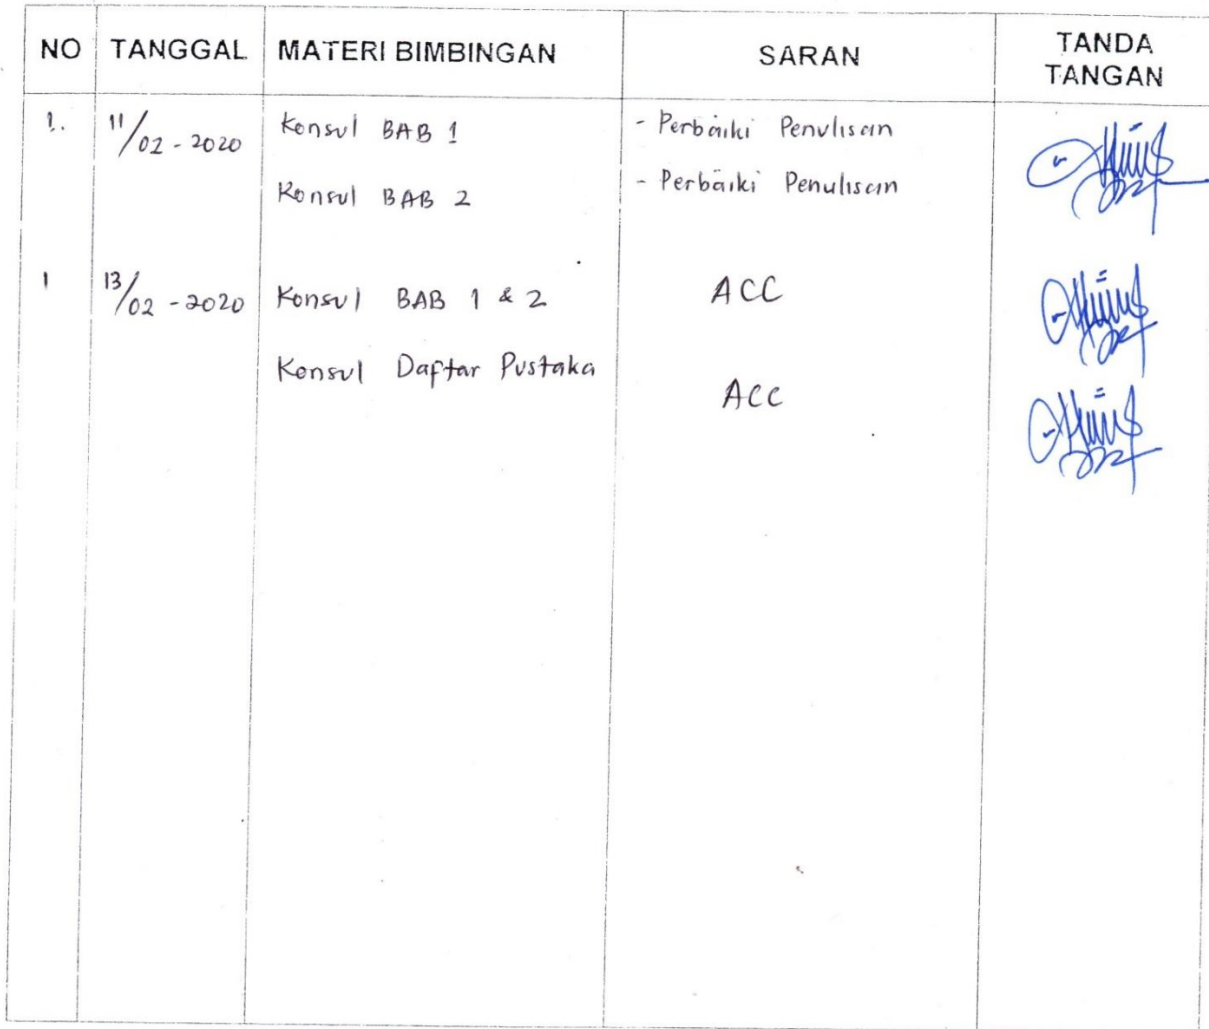 NO TANGGAL MATERI BIMBINGAN SARAN TANDA TANGAN
1. 11/02 - 2020 Konsul BAB 1 - Perbaiki Penulisan
Konsul BAB 2 - Perbaiki Penulisan
1 13/02 - 2020 Konsul BAB 1 & 2 ACC
Konsul Daftar Pustaka ACC